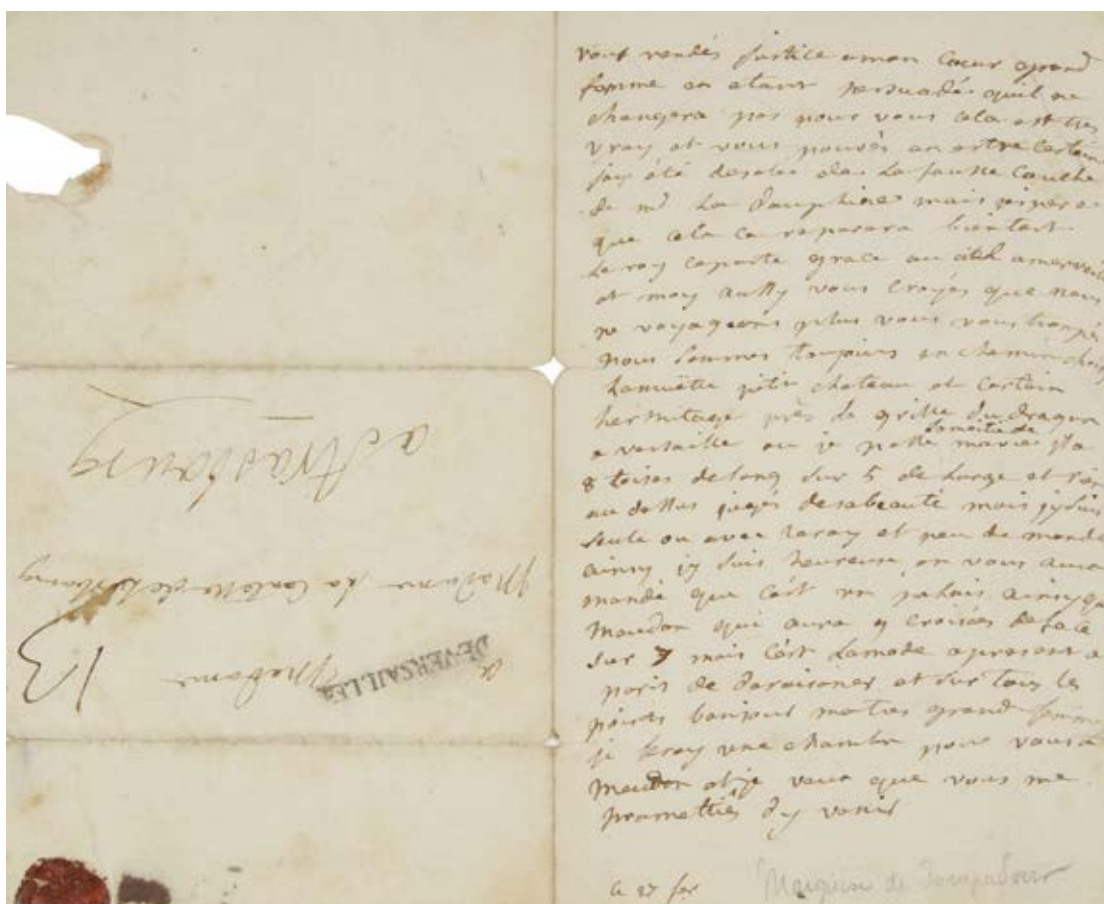 vous rendés justice a mon coeur grand
femme en etant persuadée quil ne
changera pas pour vous cela est tres
vray et vous pouvés en estre certaine
jay été desolée de la fausse couche
de md la dauphine mais jespere
que cela ce reparera bientost
le roy ce porte grace au ciel a merveille
et moy aussy vous croyés que nous
ne voyageons plus vous vous trompés
nous sommes toujours en chemin choisy
la muëtte petit chateau et certain
hermitage près la grille du dragon
a versaille ou je passe la moitié de ma vie il a
8 toises de long sur 5 de large et rien
au dessus jugés de sa beauté mais jy suis
seule ou avec le roy et peu de monde
ainsy jy suis heureuse on vous aura
mandé que cest un palais ainsy que
meudon qui aura 9 croisées de face
sur 7 mais cest la mode apresent a
paris de deraisoner et sur tous les
points bonjour ma tres grand femme
je feray une chambre pour vous a
meudon et je veux que vous me
promettiés dy venir
ce 27 fev
Marquise de Pompadour
a
Madame
DE VERSAILLES
13
Madame la Contesse de Lutzelbourg
a strasbourg